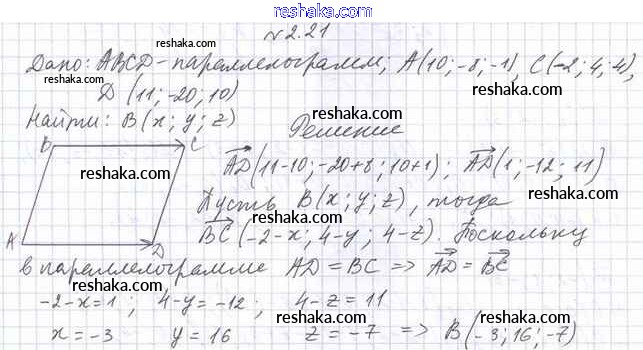 reshaka.com
№2.21
reshaka.com
Дано: ABCD-параллелограмм; A(10;-8;-1), C(-2;4;4),
reshaka.com
D (11;-20;10)
reshaka.com
reshaka.com
Найти: B(x;y;z) Решение
B C
AD(11-10;-20+8;10+1); AD(1;-12;11)
reshaka.com
reshaka.com
Пусть B(x;y;z), тогда
reshaka.com
BC(-2-x; 4-y; 4-z). Поскольку
A D
в параллелограмме AD=BC => AD=BC
reshaka.com
reshaka.com
-2-x=1; 4-y=-12; 4-z=11
reshaka.com
x=-3 y=16 z=-7 => B(-3;16;-7)
reshaka.com